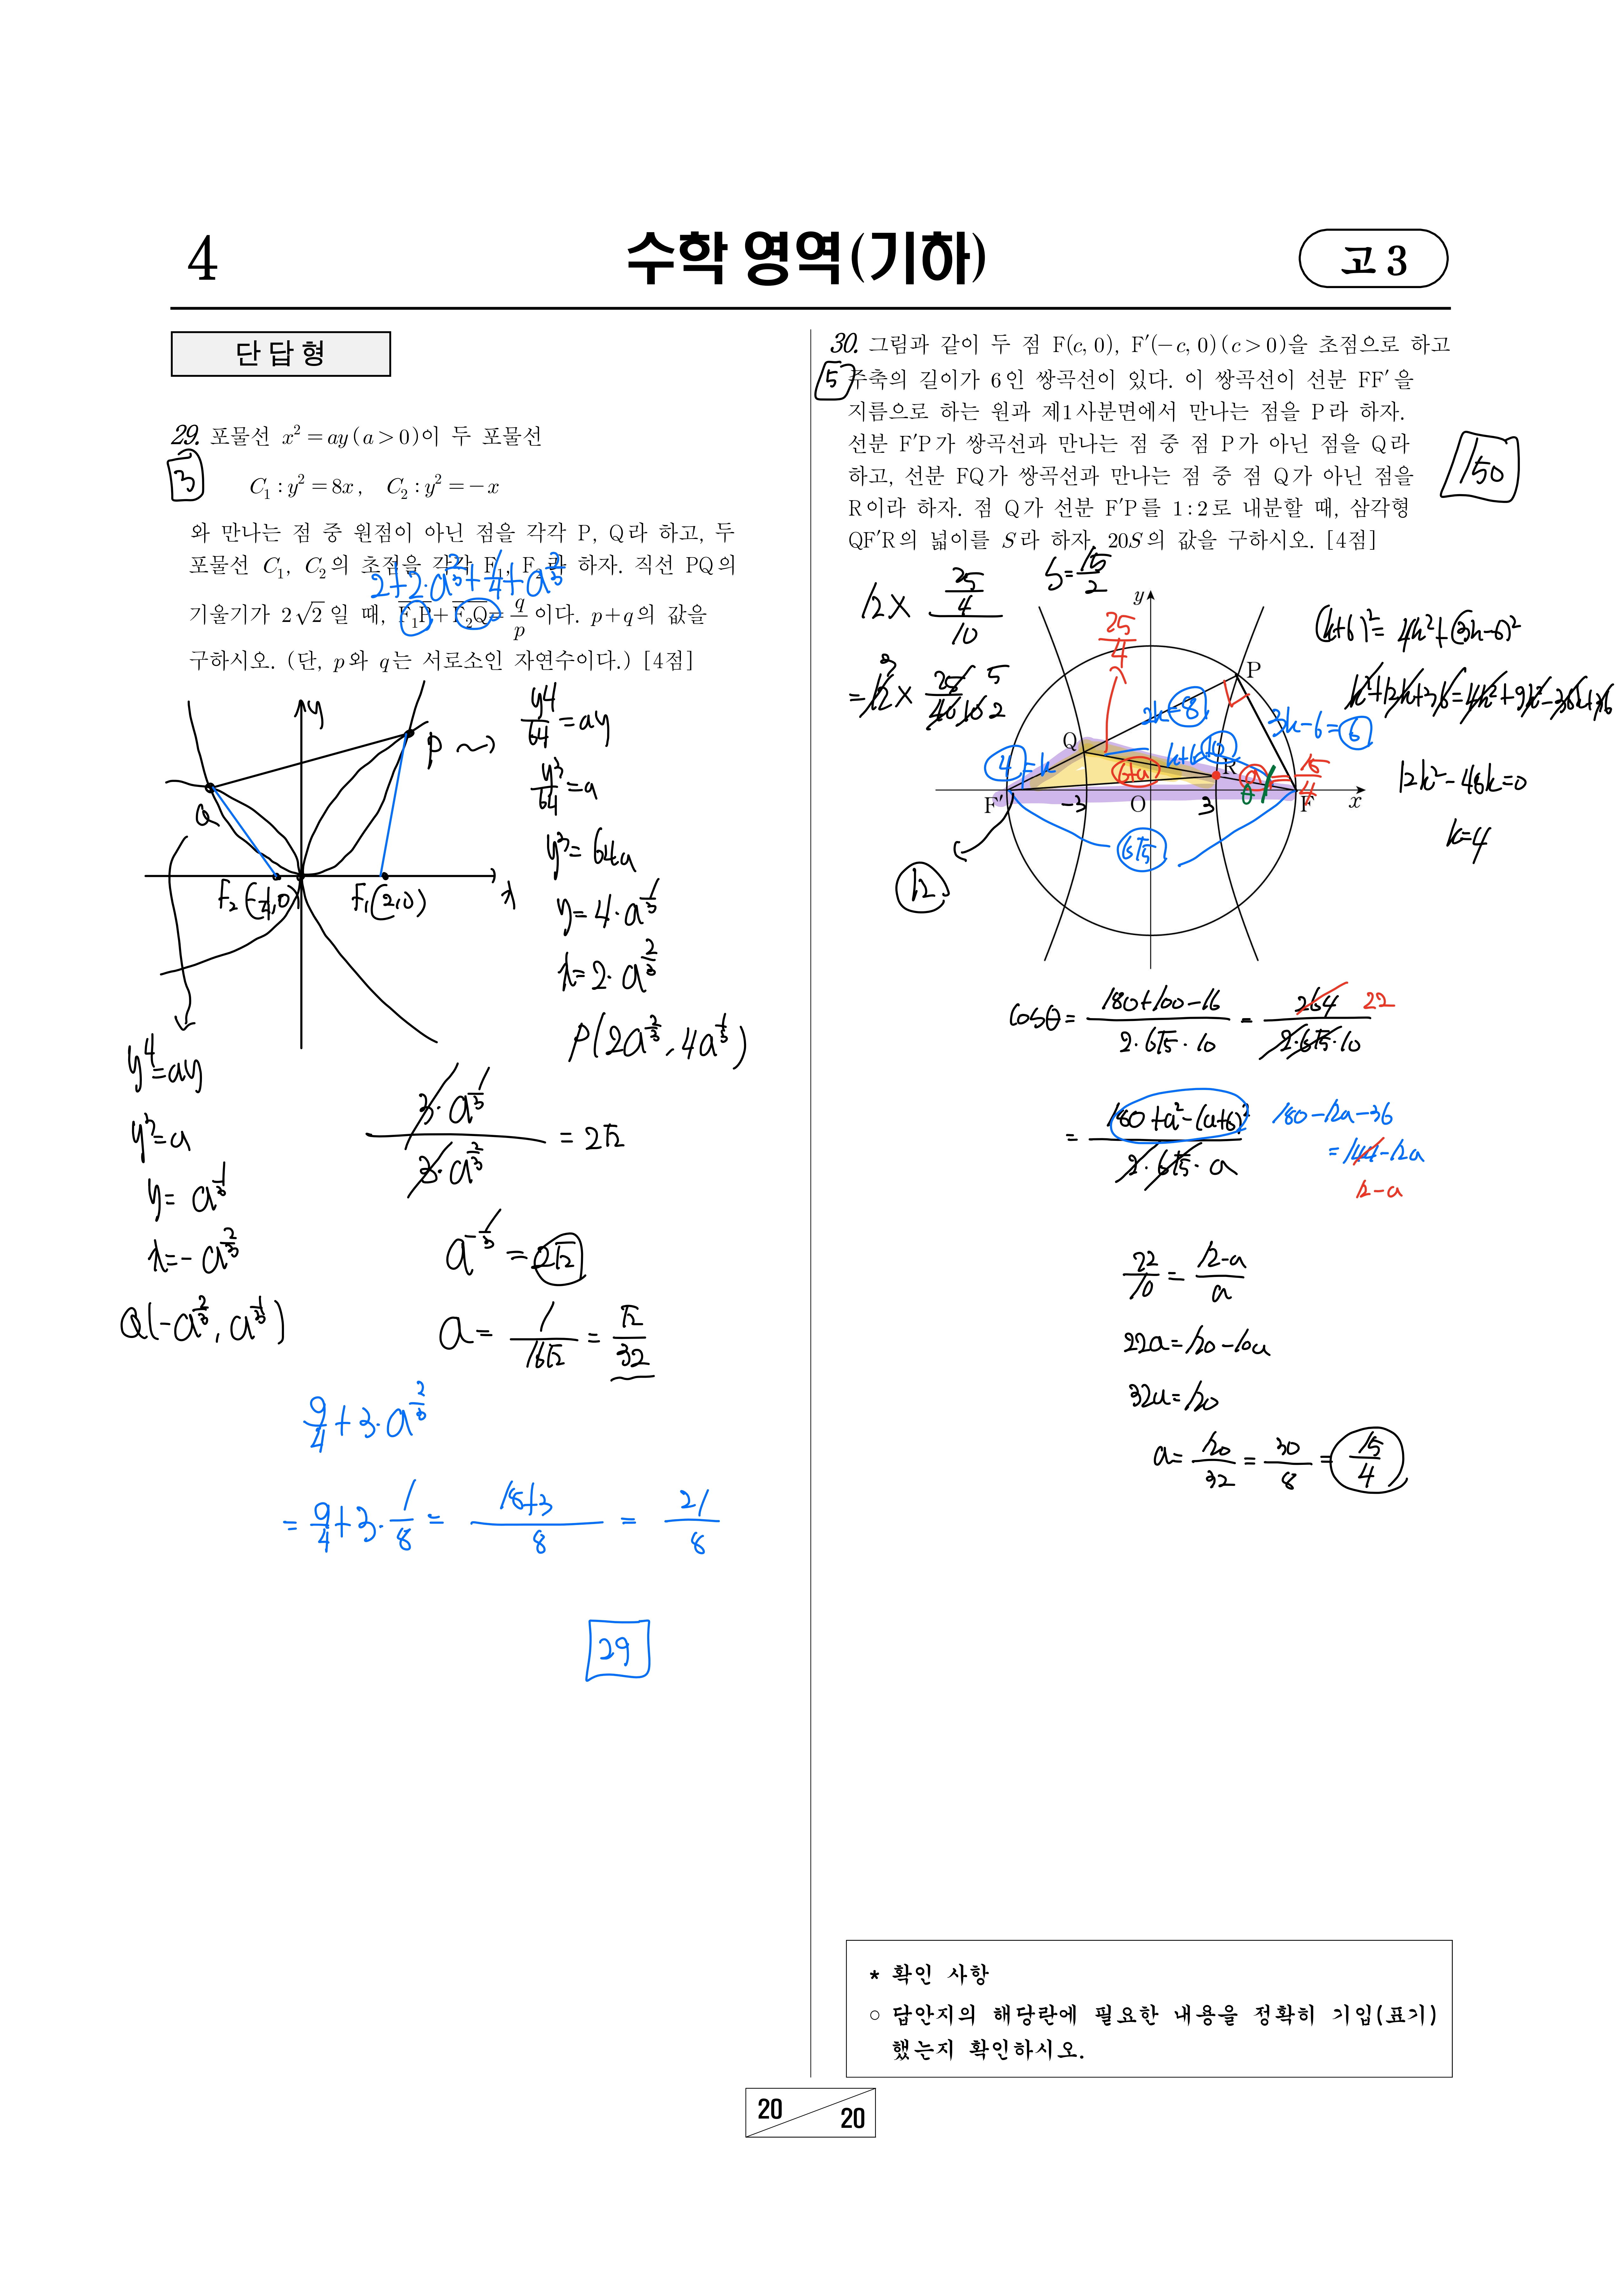 4
수학 영역(기하)
고 3
단답형
29. 포물선 x² = ay (a > 0)이 두 포물선
3
C₁ : y² = 8x, C₂ : y² = −x
와 만나는 점 중 원점이 아닌 점을 각각 P, Q라 하고, 두
포물선 C₁, C₂의 초점을 각각 F₁, F₂라 하자. 직선 PQ의
2+2·a^(2/3)+1/4+a^(2/3)
기울기가 2√2 일 때, F₁P+F₂Q= q/p 이다. p+q의 값을
구하시오. (단, p와 q는 서로소인 자연수이다.) [4점]
y
P
Q
F₂(-1/4,0)
F₁(2,0)
x
y⁴/64 = ay
y³/64 = a
y³ = 64a
y = 4·a^(1/3)
x = 2·a^(2/3)
P(2a^(2/3), 4a^(1/3))
y⁴=ay
y³=a
y= a^(1/3)
x=- a^(2/3)
Q(-a^(2/3), a^(1/3))
3·a^(1/3) / 3·a^(2/3) = 2√2
a^(-1/3) = 2√2
a = 1/16√2 = √2/32
9/4 + 3·a^(2/3)
= 9/4 + 3·1/8 = 18+3/8 = 21/8
29
30. 그림과 같이 두 점 F(c, 0), F′(−c, 0) (c > 0)을 초점으로 하고
5
주축의 길이가 6인 쌍곡선이 있다. 이 쌍곡선이 선분 FF′을
지름으로 하는 원과 제1사분면에서 만나는 점을 P라 하자.
선분 F′P가 쌍곡선과 만나는 점 중 점 P가 아닌 점을 Q라
하고, 선분 FQ가 쌍곡선과 만나는 점 중 점 Q가 아닌 점을
R이라 하자. 점 Q가 선분 F′P를 1 : 2로 내분할 때, 삼각형
QF′R의 넓이를 S라 하자. 20S의 값을 구하시오. [4점]
150
12 × 25/4 / 10
S = 15/2
= 12 × 25/40
y
25/4
P
2k=8
3k-6=6
Q
k+6=10
4=k
6+a
R
a = 15/4
θ
F′
-3
O
3
F
x
6√5
12
(k+6)²= 4k²+(3k-6)²
k²+12k+36=4k²+9k²-36k+36
12k²-48k=0
k=4
cosθ = 180+100-16 / 2·6√5·10 = 264 / 2·6√5·10
22
= 180+a²-(a+6)² / 2·6√5·a
180-12a-36
=144-12a
12-a
22/10 = 12-a/a
22a=120-10a
32a=120
a= 120/32 = 30/8 = 15/4
* 확인 사항
○ 답안지의 해당란에 필요한 내용을 정확히 기입(표기)
했는지 확인하시오.
20
20